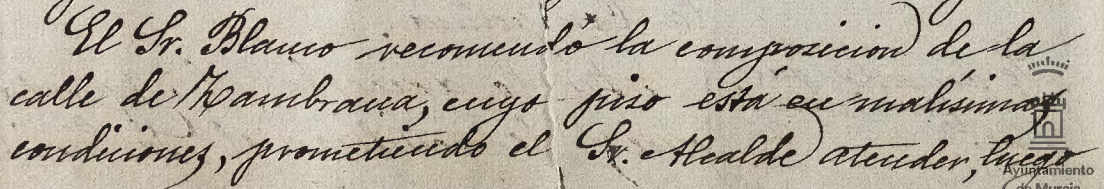 El Sr. Blanco recomendó la composicion de la
calle de Zambrana, cuyo piso está en malísimas
condiciones, prometiendo el Sr. Alcalde atender, luego
Ayuntamiento
de Murcia